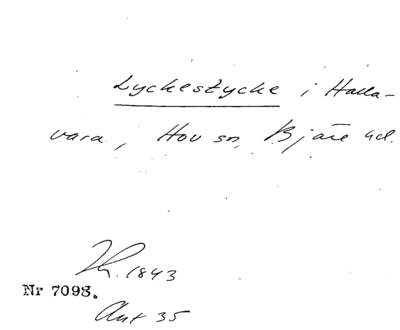 Lyckestycke i Halla-
vara, Hov sn, Bjäre hd.
Th. 1843
Nr 7093.
Ant 35